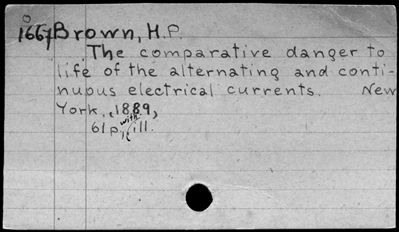 O
1667 Brown, H.P.
The comparative danger to
life of the alternating and conti-
nuous electrical currents. New
York, 1889,
61p, with ill.